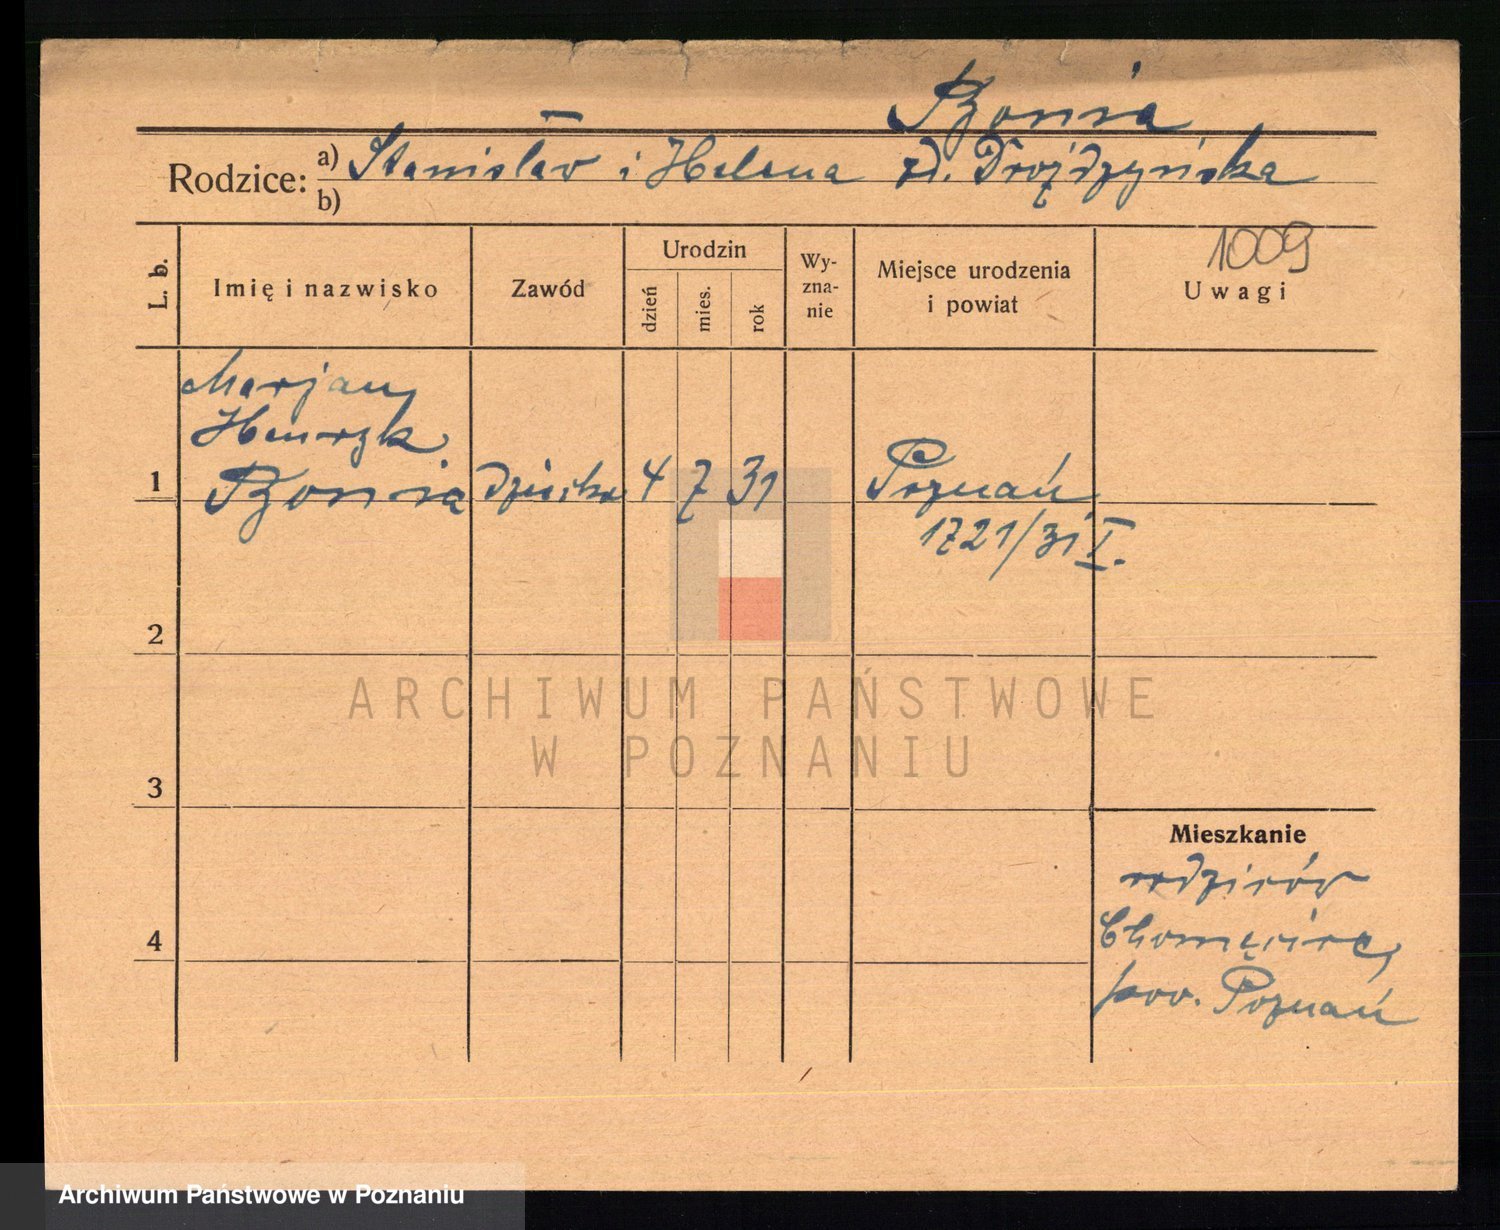 Bzonia
Rodzice: a) Stanisław i Helena zd. Drożdżyńska
b)
1009
L. b.
Imię i nazwisko
Zawód
Urodzin
dzień
mies.
rok
Wy-
zna-
nie
Miejsce urodzenia
i powiat
Uwagi
Marjan
Henryk
1 Bzonia dziecko 4 7 31 Poznań
1721/31 I.
2
ARCHIWUM PAŃSTWOWE
W POZNANIU
3
Mieszkanie
rodziców
4 Chomęcice,
pow. Poznań
Archiwum Państwowe w Poznaniu